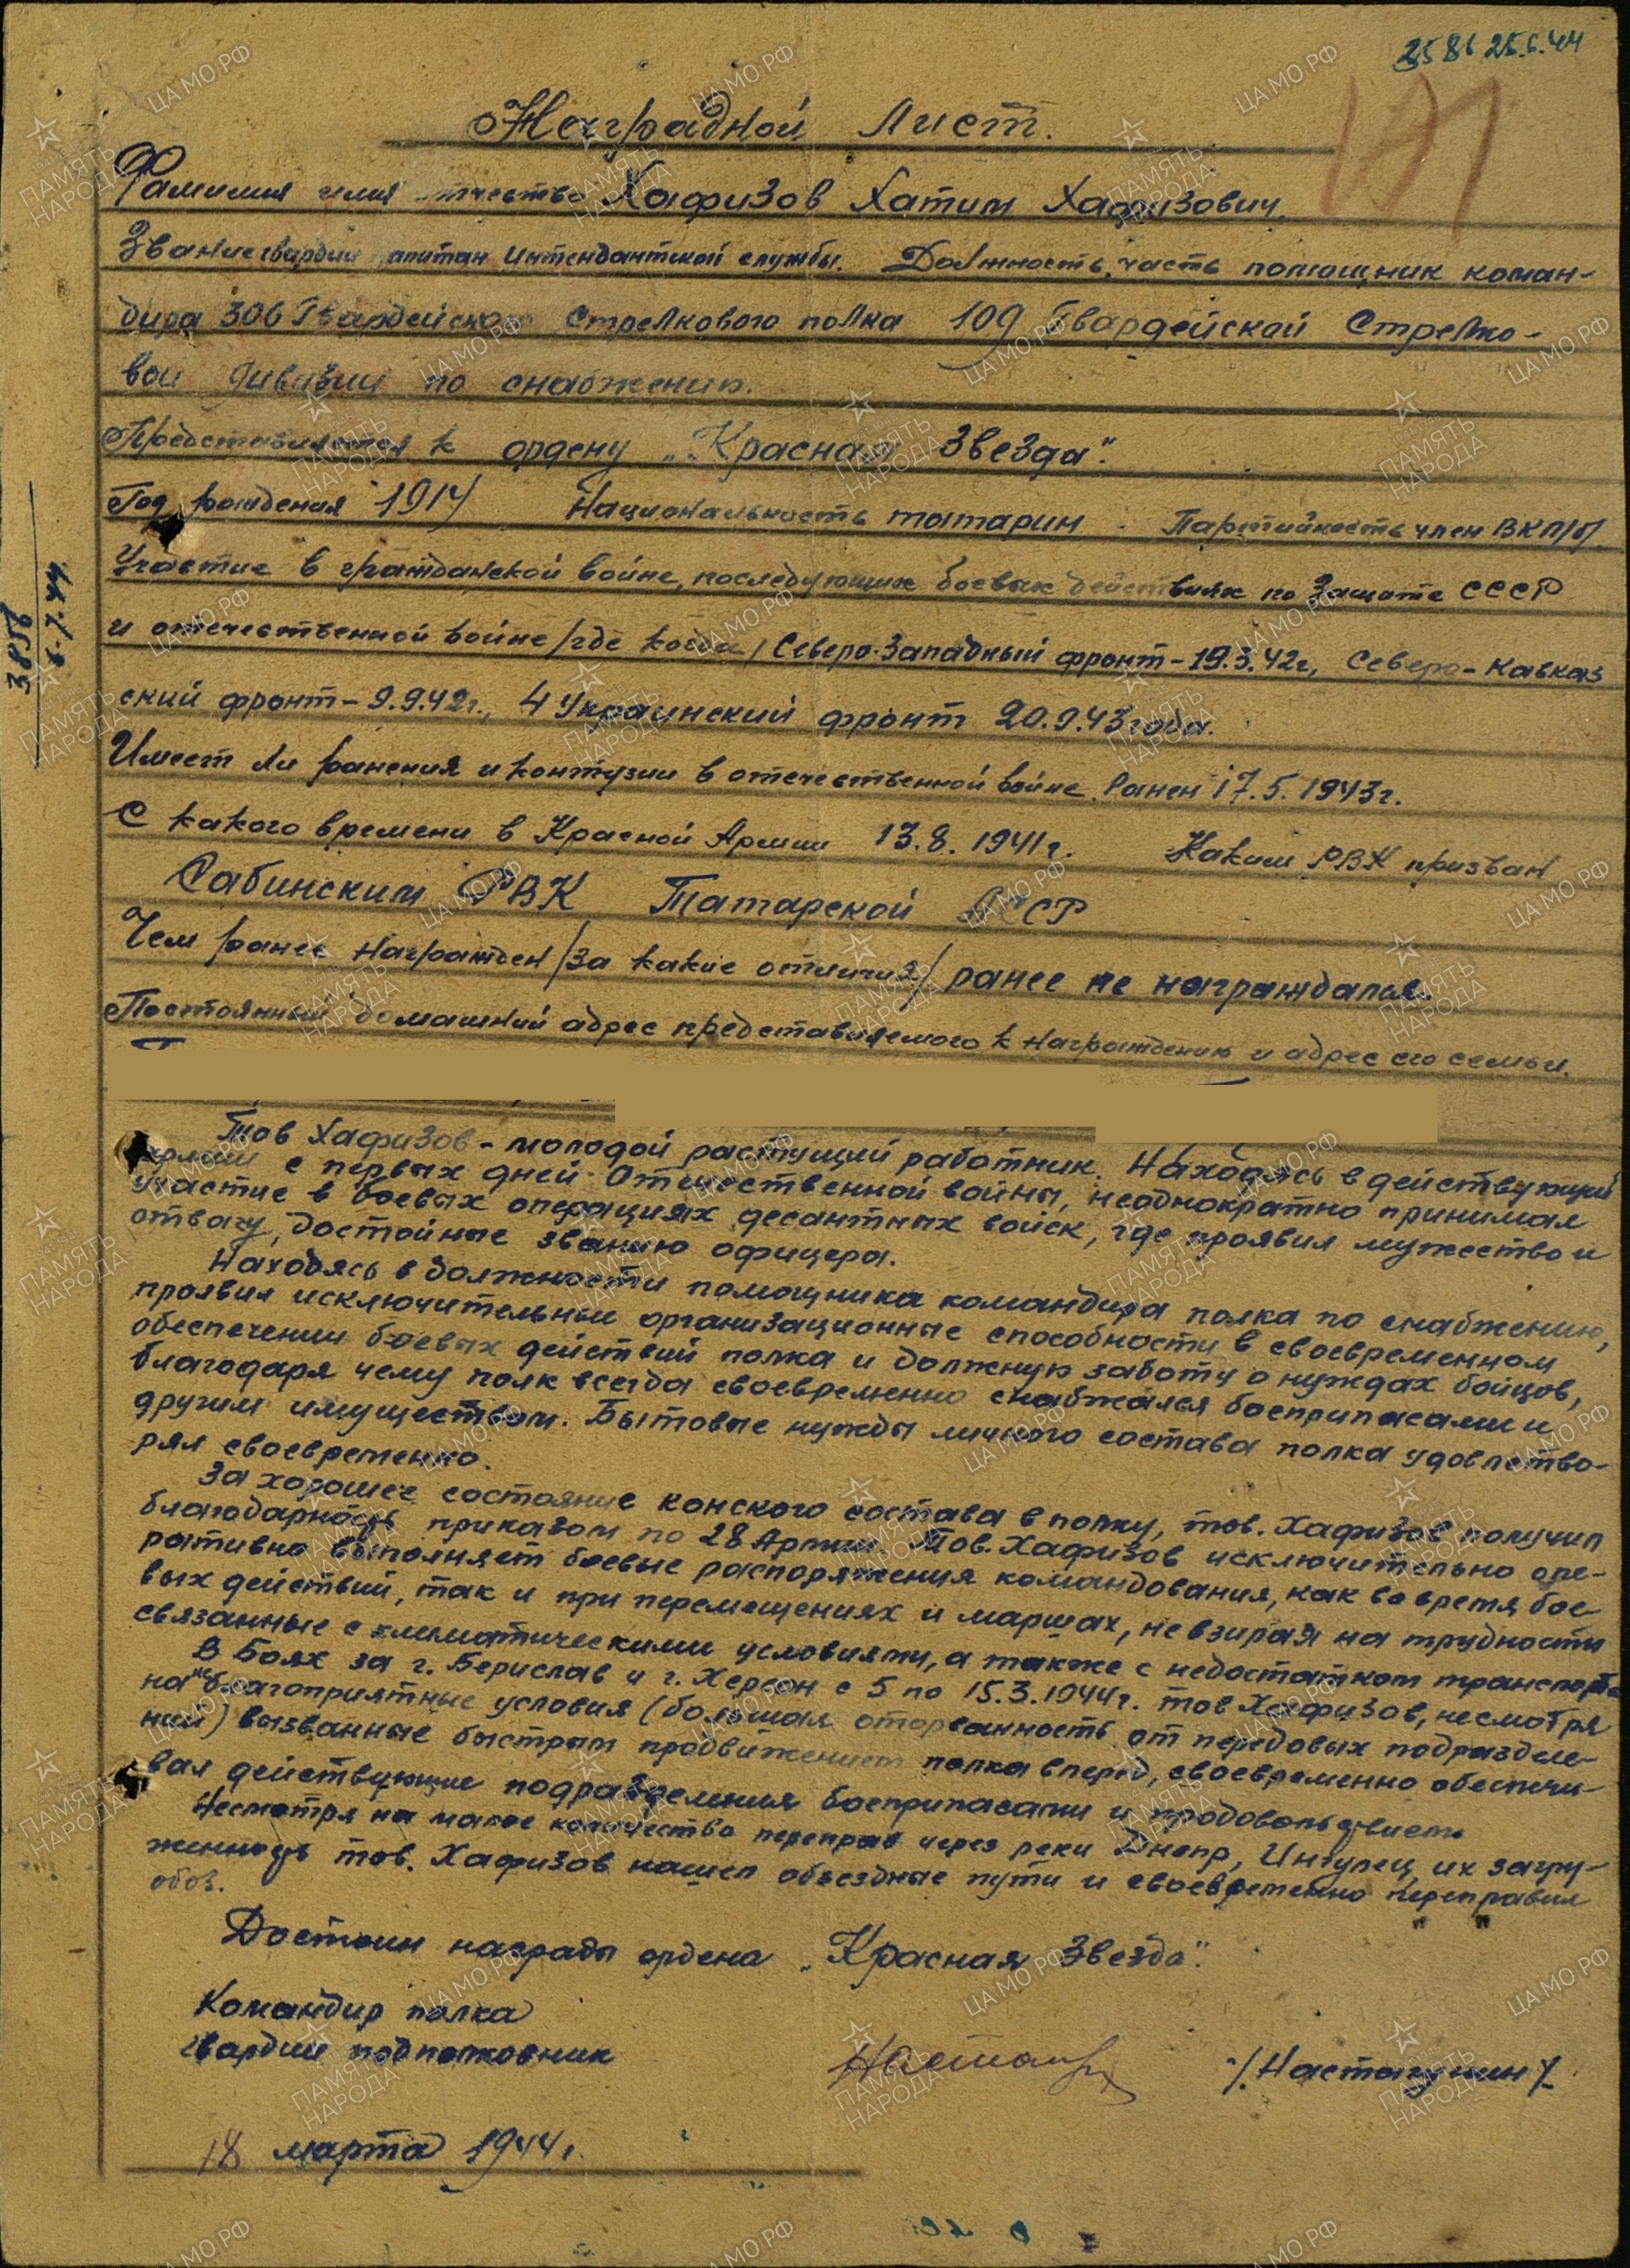 25.6.44
Наградной Лист.
Фамилия имя отчество Хафизов Хатип Хафизович.
Звание гвардии капитан Интендантской службы. Должность, часть помощник коман-
дира 306 Гвардейского Стрелкового полка 109 Гвардейской Стрелко-
вой дивизии по снабжению.
Представляется к ордену „Красная Звезда".
Год рождения 1914 Национальность татарин Партийность член ВКП/б/.
Участие в гражданской войне, последующих боевых действиях по защите СССР
и отечественной войне /где когда/ Северо-Западный фронт-19.3.42г, Северо-Кавказ
ский фронт-9.9.42г., 4 Украинский фронт 20.9.43 года.
Имеет ли ранения и контузии в отечественной войне. Ранен 17.5.1943г.
С какого времени в Красной Армии 13.8.1941г. Каким РВК призван
Сабинским РВК Татарской АССР
Чем ранее награжден /за какие отличия/ ранее не награждался.
Постоянный домашний адрес представляемого к награждению и адрес его семьи.
Тов Хафизов-молодой растущий работник. Находясь в действующей
армии с первых дней Отечественной войны, неоднократно принимал
участие в боевых операциях десантных войск, где проявил мужество и
отвагу, достойные званию офицера.
Находясь в должности помощника командира полка по снабжению,
проявил исключительные организационные способности в своевременном
обеспечении боевых действий полка и должную заботу о нуждах бойцов,
благодаря чему полк всегда своевременно снабжался боеприпасами и
другим имуществом. Бытовые нужды личного состава полка удовлетво-
рял своевременно.
За хорошее состояние конского состава в полку, тов. Хафизов получил
благодарность приказом по 28 Армии. Тов. Хафизов исключительно опе-
ративно выполняет боевые распоряжения командования, как во время бое-
вых действий, так и при перемещениях и маршах, не взирая на трудности
связанные с климатическими условиями, а также с недостатком транспорта
В боях за г. Берислав и г. Херсон с 5 по 15.3.1944г. тов Хафизов, несмотря
на неблагоприятные условия (большая оторванность от передовых подразделе-
ний) вызванные быстрым продвижением полка вперед, своевременно обеспечи-
вал действующие подразделения боеприпасами и продовольствием.
Несмотря на малое количество переправ через реки Днепр, Ингулец, их загру-
женность тов. Хафизов нашел объездные пути и своевременно переправил
обоз.
Достоин награды ордена „Красная Звезда".
Командир полка
гвардии подполковник /Настагунин/
18 марта 1944г.
3856
6-7.44
ПАМЯТЬ НАРОДА
ЦА МО РФ